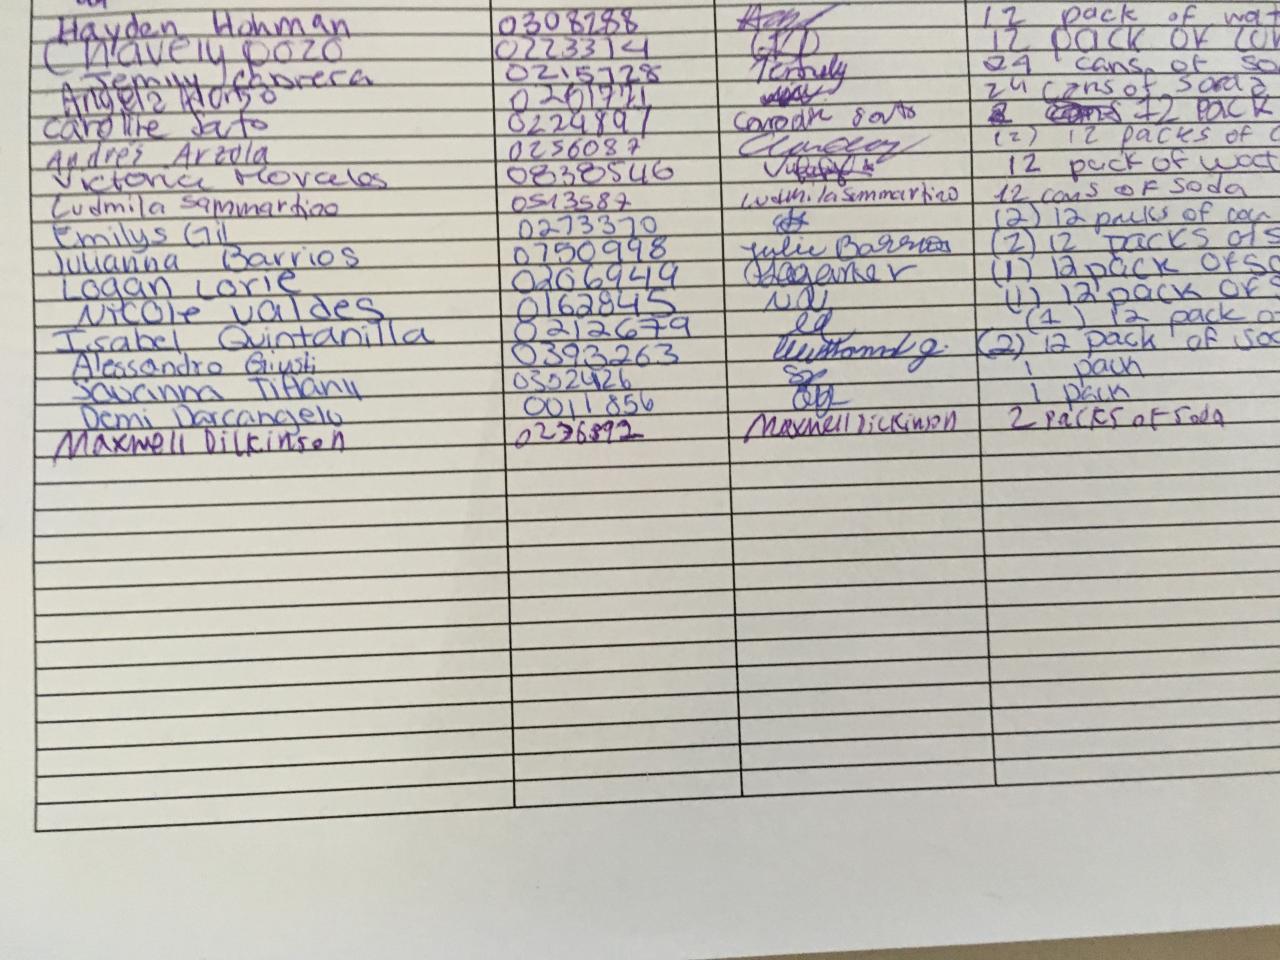 Hayden Hohman 0308288 12 pack of wat
Chavely pozo 0223314 12 pack of
Jemily Cabrera 0215728 Jemily 24 cans of so
Angela Alonso 0261771 24 cans of soda
Caroline Sato 0224897 Caroline Sato 12 pack
Andres Arzola 0256087 (2) 12 packs of
Victoria Morcelos 0838546 12 pack of wat
Ludmila Sammartino 0513587 Ludmila Sammartino 12 cans of soda
Emilys Gil 0273370 (2) 12 packs of can
Julianna Barrios 0750998 Julie Barrios (2) 12 packs of s
Logan Lorie 0266949 (1) 12 pack of so
Nicole Valdes 0162845 NV (1) 12 pack of s
Isabel Quintanilla 0212679 (1) 12 pack o
Alessandro Giusti 0393263 (2) 12 pack of soc
Savanna Tiffany 0302426 1 pack
Demi Darcangelo 0011856 1 pack
Maxwell Dilkinson 0236892 Maxwell Dickinson 2 packs of soda